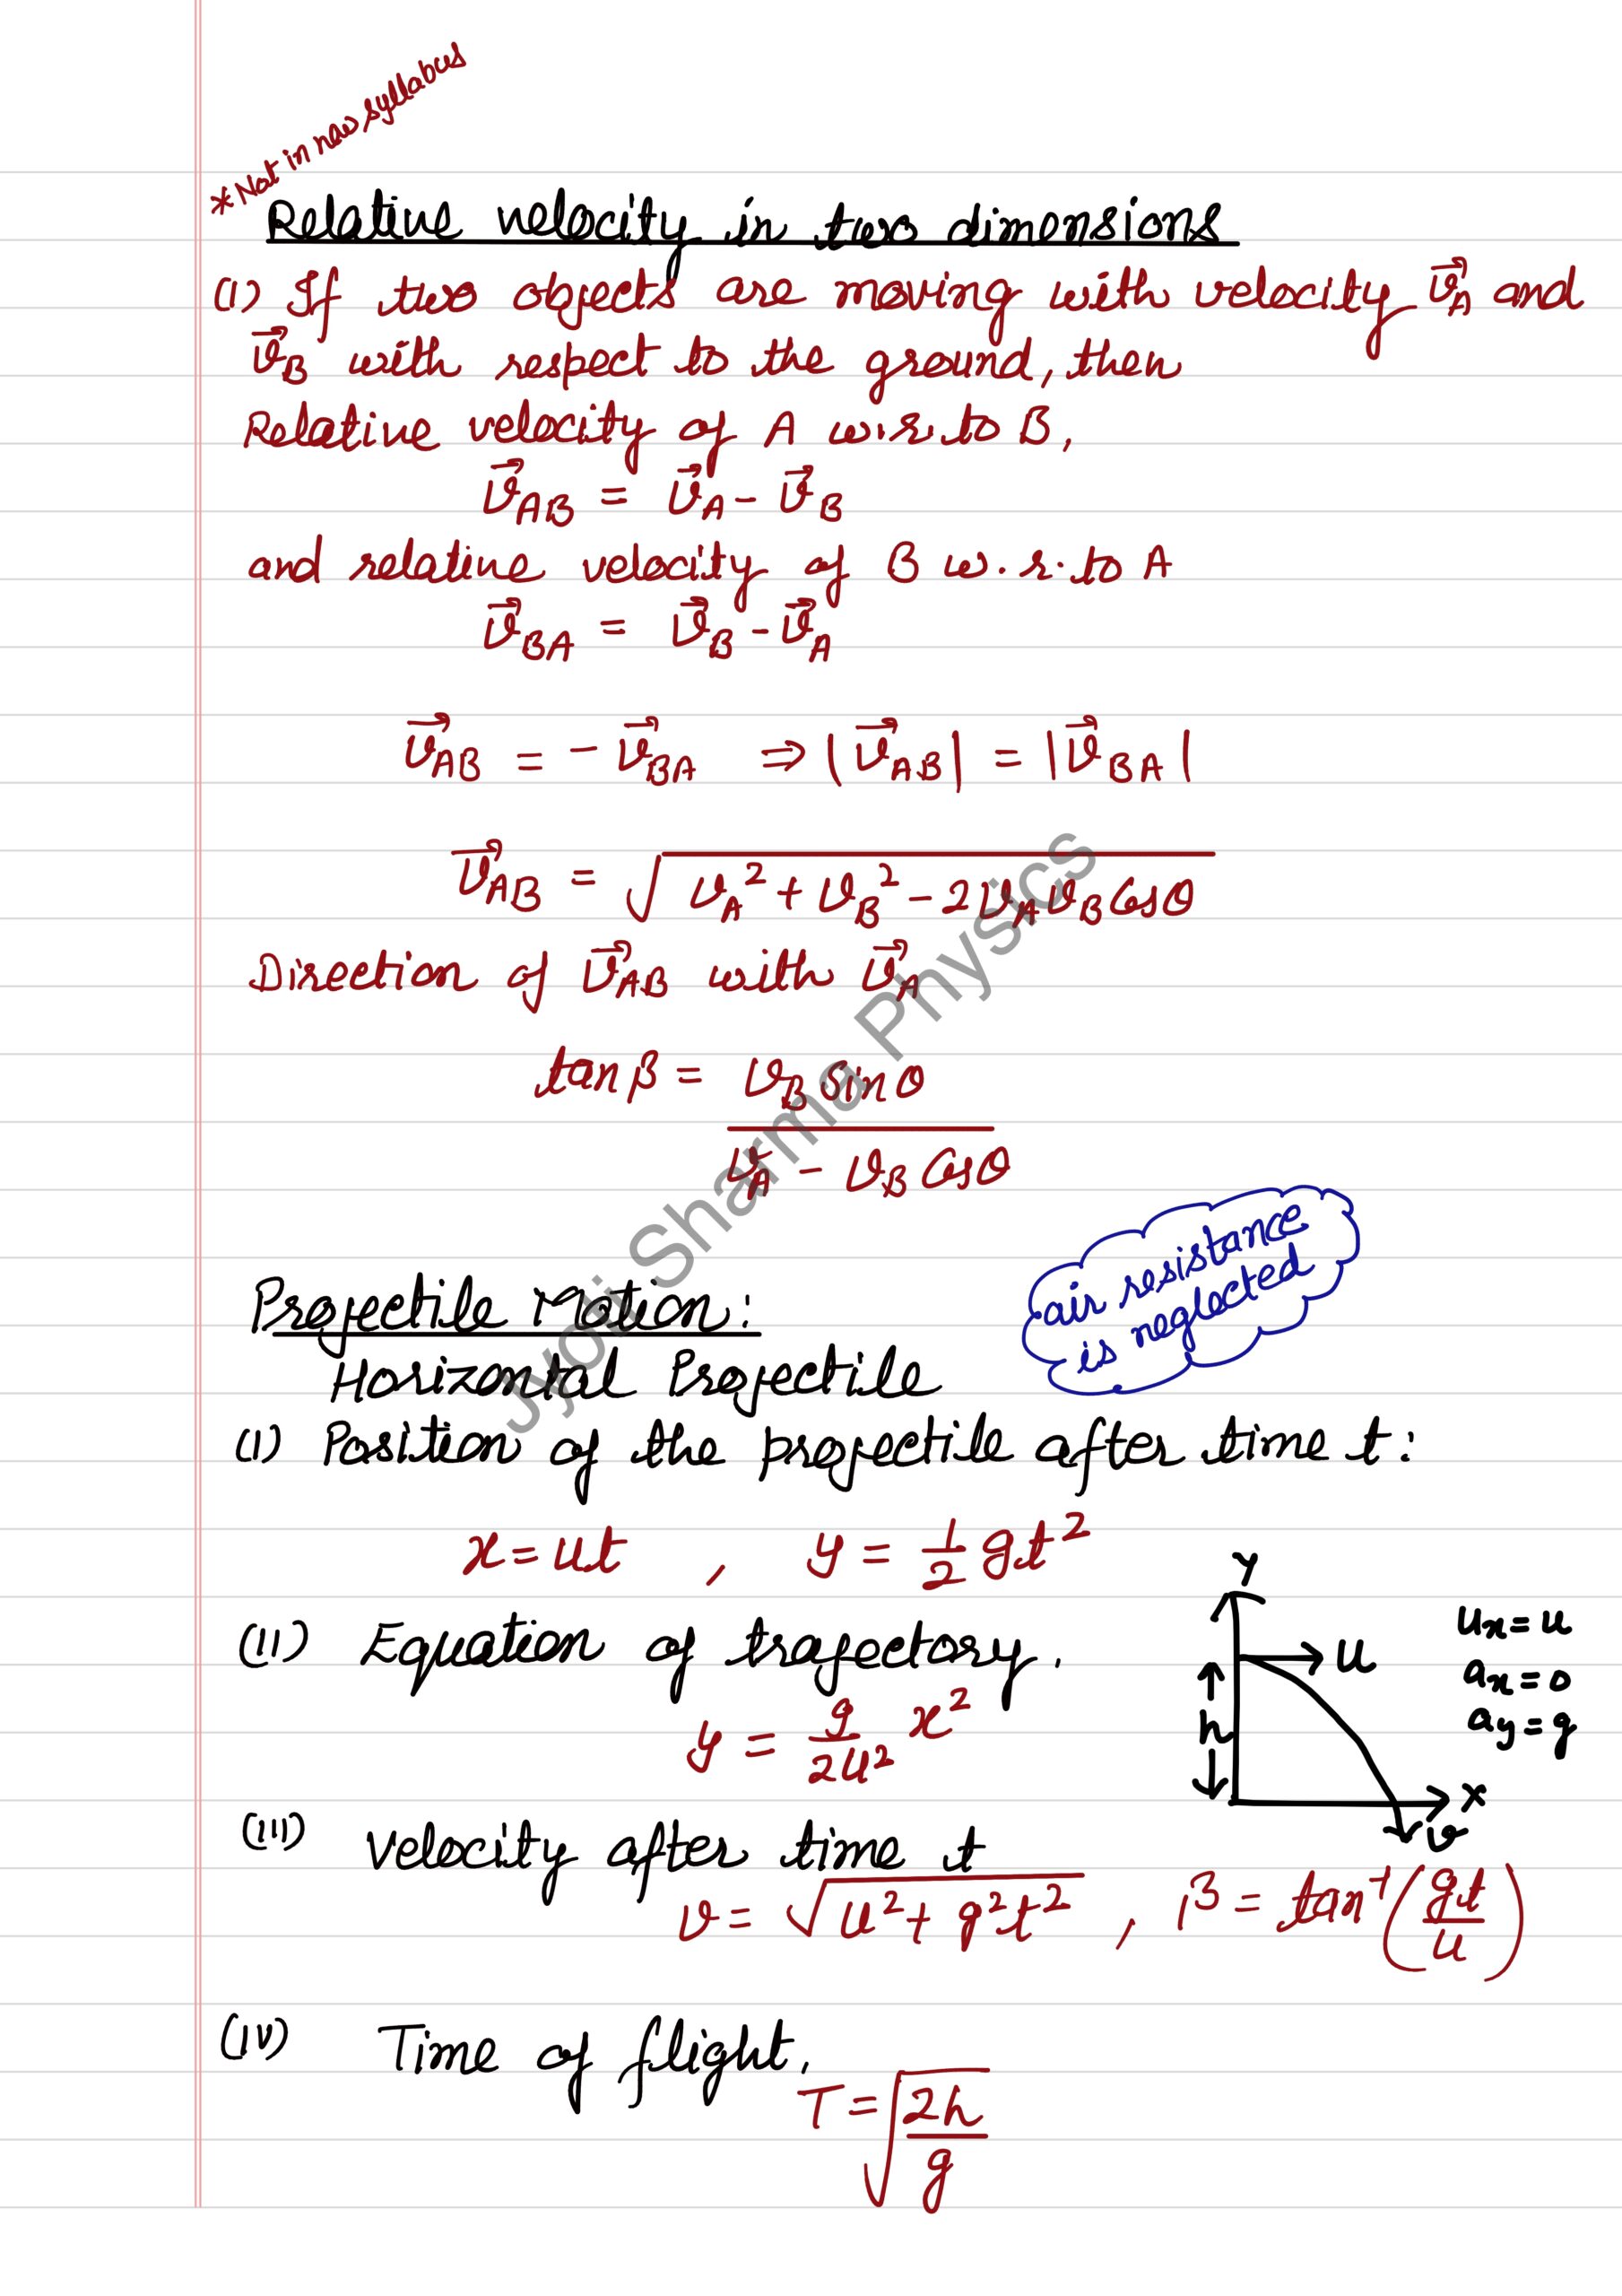 *Not in new syllabus
Relative velocity in two dimensions
(1) If two objects are moving with velocity v⃗_A and
v⃗_B with respect to the ground, then
Relative velocity of A w.r.to B,
v⃗_AB = v⃗_A - v⃗_B
and relative velocity of B w.r.to A
v⃗_BA = v⃗_B - v⃗_A
v⃗_AB = - v⃗_BA ⇒ |v⃗_AB| = |v⃗_BA|
v⃗_AB = √(v_A² + v_B² - 2v_A v_B Cosθ)
Direction of v⃗_AB with v⃗_A
tan β = v_B Sinθ / (v_A - v_B Cosθ)
air resistance
is neglected
Projectile Motion:
Horizontal Projectile
(1) Position of the projectile after time t:
x = ut , y = 1/2 gt²
(ii) Equation of trajectory.
y = g/2u² x²
Y
u
h
X
v
u_x = u
a_x = 0
a_y = g
(iii) Velocity after time t
v = √(u² + g²t²) , β = tan⁻¹(gt/u)
(iv) Time of flight.
T = √(2h/g)
Jyoti Sharma Physics